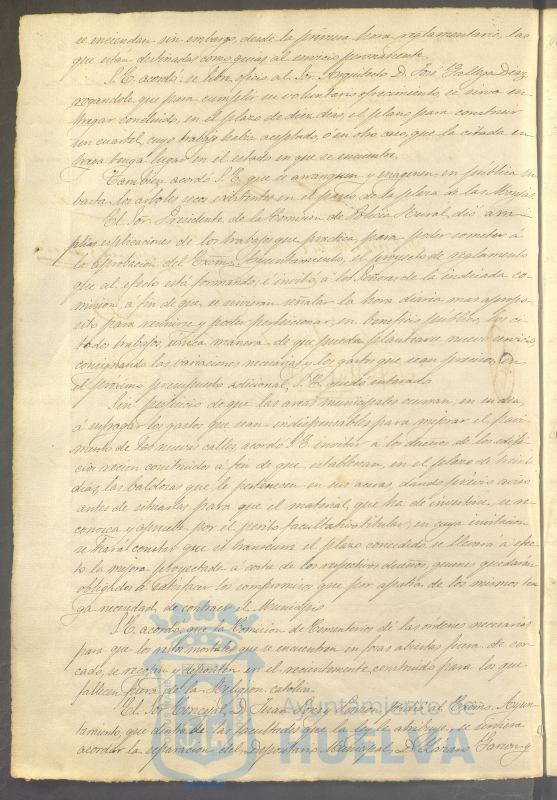 se enciendan sin embargo, desde la primera hora reglamentaria, las
que estan destinadas como guias al servicio permanente.
S. E. acordó: se libre oficio al Sor. Arquitecto D. José Gallegos Diaz,
rogandole que para cumplir su voluntario ofrecimiento, se sirva en-
tregar concluido, en el plazo de diez dias, el plano para construir
un cuartel, cuyo trabajo habia aceptado, ó en otro caso, que la citada en-
trega tenga lugar en el estado en que se encuentre.
Tambien acordó S. E. que se arranquen y enagenen en pública su-
basta los arboles secos existentes en el paseo de la plaza de las Monjas.
El Sor. Presidente de la Comision de Policia Rural, dió am-
plias esplicaciones de los trabajos que practica, para poder someter á
la aprobacion del Excmo. Ayuntamiento, el proyecto de reglamento
que al efecto está formando, é invitó á los Señores de la indicada co-
mision, a fin de que se sirvieran señalar la hora diaria mas aprópo-
sito para reunirse y poder perfeccionar, en beneficio público, los ci-
tados trabajos, única manera de que pueda plantearse nuevo servicio,
consignando las variaciones necesarias y los gastos que sean precisos, en
el próximo presupuesto adicional. S. E. quedó enterado.
Sin perjuicio de que las arcas municipales ocurran, en su dia,
á sufragar los gastos que sean indispensables para mejorar el pavi-
mento de las nuevas calles, acordó S. E. invitar á los dueños de los edifi-
cios recien construidos a fin de que establezcan, en el plazo de treinta
dias, las baldosas que le pertenecen en sus aceras, dando previo aviso
antes de sentarlas para que el material, que ha de invertirse, se re-
conozca y apruebe por el perito facultativo titular; en cuya invitacion
se hará constar que si trascurre el plazo concedido se llevará a efec-
to la mejora proyectada á costa de los respectivos dueños, quienes quedarán
obligados á satisfacer los compromisos que por apatia de los mismos ten-
ga necesidad de contraer el Municipio.
S. E. acordó que la Comision de Cementerios dé las ordenes necesarias
para que los restos mortales que se encuentren en fosas abiertas fuera de cer-
cado, se recojan y depositen en el recientemente construido para los que
fallecen fuera de la Religion católica.
El Sor. Concejal D. Juan Lopez
Excmo. Ayun-
tamiento, que dentro de las facultades que la Ley le atribuye, se sirviera
acordar la separacion del Depositario Municipal, D.
Garzon y
Ayuntamiento de
HUELVA